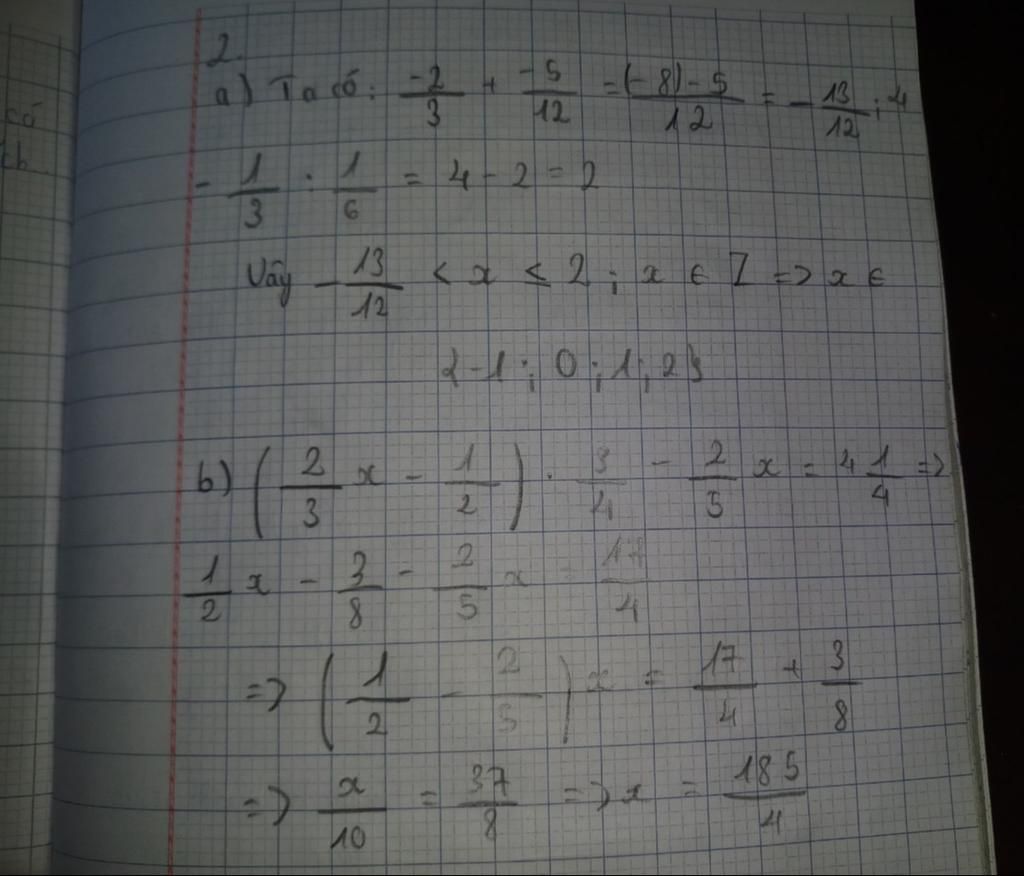 có
2.
a) Ta có: -2/3 + -5/12 = (-8)-5/12 = -13/12 ; 4
- 1/3 : 1/6 = 4 - 2 = 2
Vậy -13/12 < x ≤ 2 ; x ∈ Z => x ∈
{-1; 0; 1; 2}
b) (2/3 x - 1/2) . 3/4 - 2/5 x = 4 1/4 =>
1/2 x - 3/8 - 2/5 x = 17/4
=> (1/2 - 2/5) x = 17/4 + 3/8
=> x/10 = 37/8 => x = 185/4